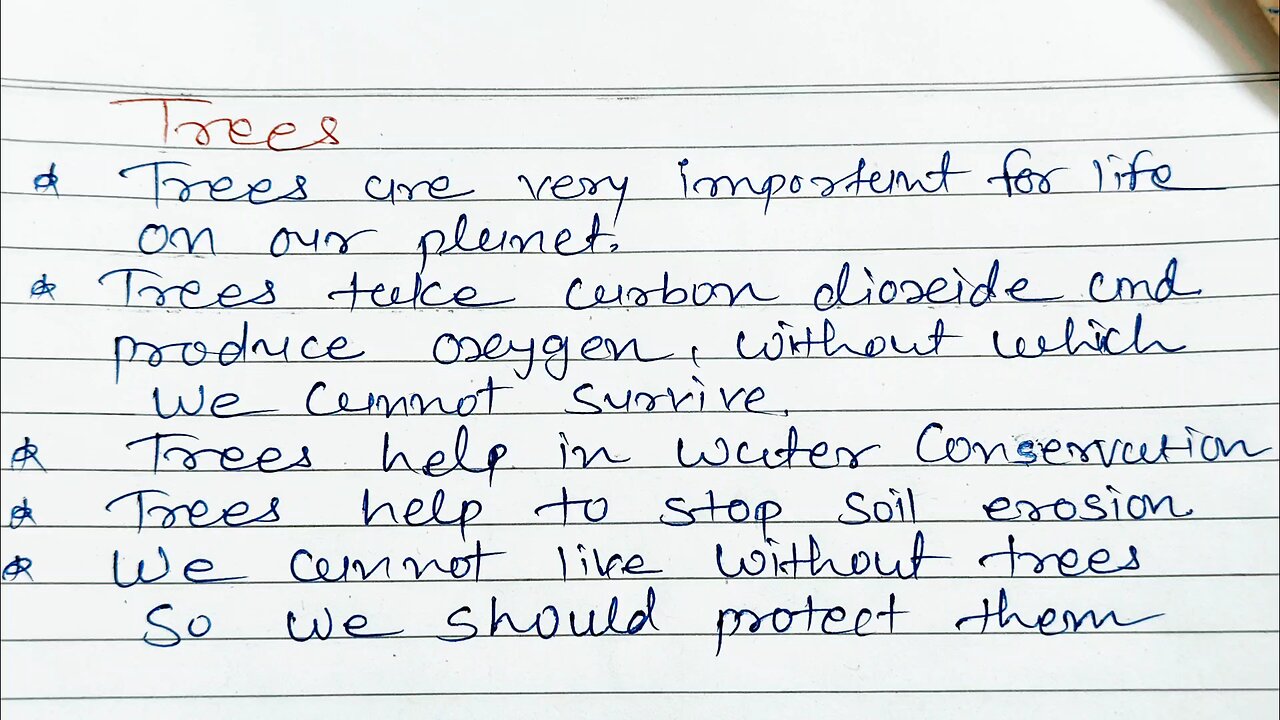 Trees
* Trees are very important for life
on our planet.
* Trees take carbon dioxeide and
produce oxeygen, without which
we cannot survive.
* Trees help in water Conservation
* Trees help to stop soil erosion.
* We cannot live without trees
So we should protect them